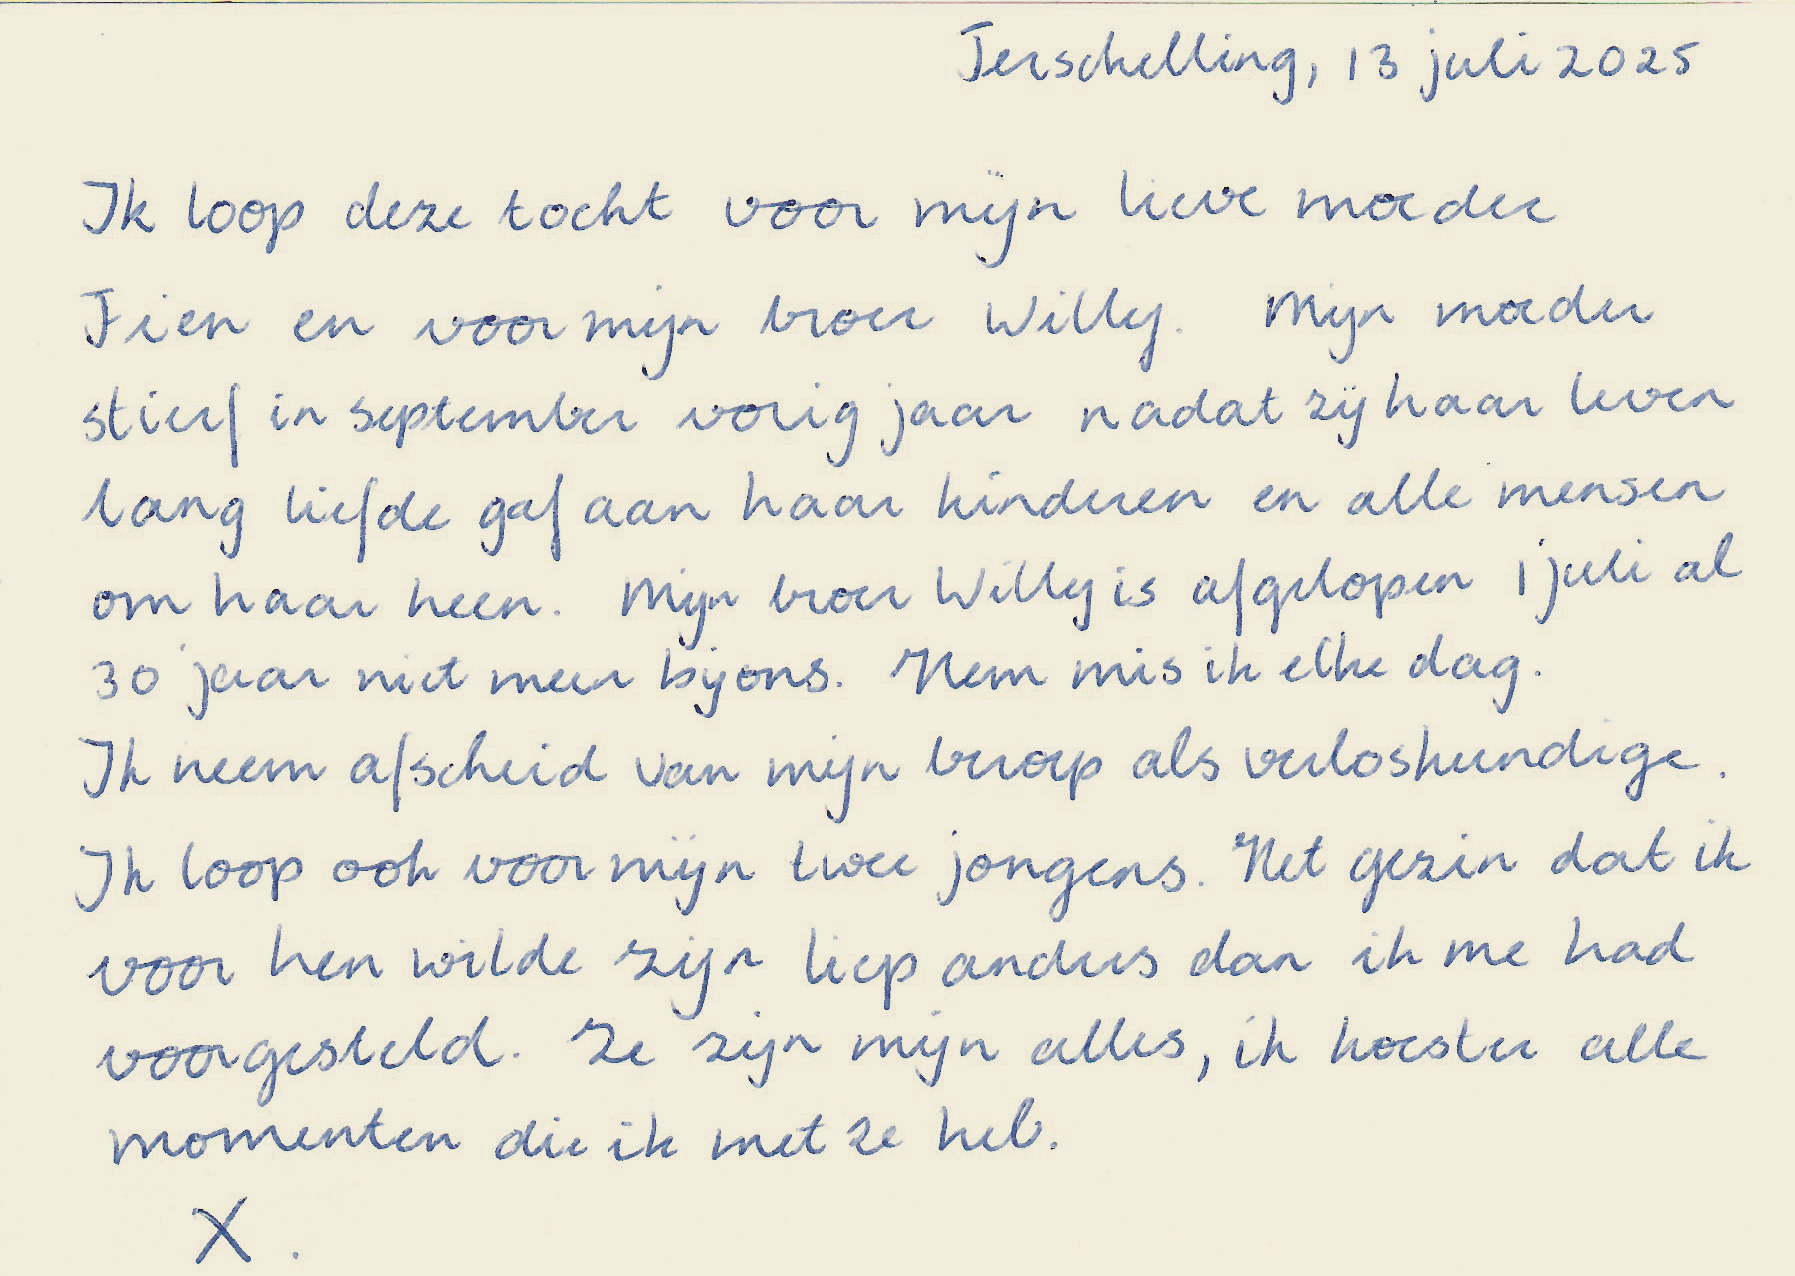 Terschelling, 13 juli 2025
Ik loop deze tocht voor mijn lieve moeder
Fien en voor mijn broer Willy. Mijn moeder
stierf in september vorig jaar nadat zij haar leven
lang liefde gaf aan haar kinderen en alle mensen
om haar heen. Mijn broer Willy is afgelopen 1 juli al
30 jaar niet meer bij ons. Hem mis ik elke dag.
Ik neem afscheid van mijn beroep als verloskundige.
Ik loop ook voor mijn twee jongens. Het gezin dat ik
voor hen wilde zijn liep anders dan ik me had
voorgesteld. Ze zijn mijn alles, ik koester alle
momenten die ik met ze heb.
X.